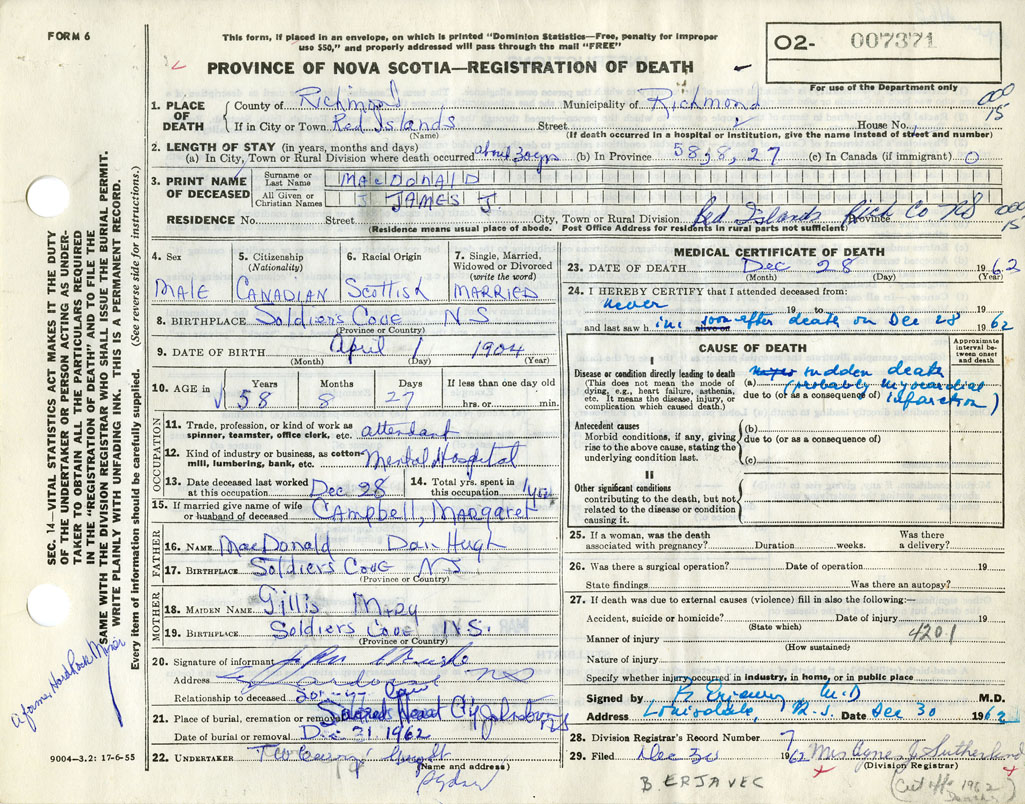 FORM 6
This form, if placed in an envelope, on which is printed "Dominion Statistics—Free, penalty for improper
use $50," and properly addressed will pass through the mail "FREE"
PROVINCE OF NOVA SCOTIA—REGISTRATION OF DEATH
02- 007371
For use of the Department only
SEC. 14—VITAL STATISTICS ACT MAKES IT THE DUTY
OF THE UNDERTAKER OR PERSON ACTING AS UNDER-
TAKER TO OBTAIN ALL THE PARTICULARS REQUIRED
IN THE "REGISTRATION OF DEATH" AND TO FILE THE
SAME WITH THE DIVISION REGISTRAR WHO SHALL ISSUE BURIAL PERMIT.
WRITE PLAINLY WITH UNFADING INK. THIS IS A PERMANENT RECORD.
Every item of information should be carefully supplied. (See reverse side for instructions.)
a former Hard Rock Miner
1. PLACE OF DEATH County of Richmond Municipality of Richmond 000
If in City or Town Red Islands Street House No. 15
(Name) (If death occurred in a hospital or institution, give the name instead of street and number)
2. LENGTH OF STAY (in years, months and days)
(a) In City, Town or Rural Division where death occurred about 30 yrs (b) In Province 58, 8, 27 (c) In Canada (if immigrant) 0
3. PRINT NAME OF DECEASED Surname or Last Name MACDONALD
All Given or Christian Names JAMES J.
RESIDENCE No. Street City, Town or Rural Division Red Islands Rich Co NS Province 000 15
(Residence means usual place of abode. Post Office Address for residents in rural parts not sufficient)
4. Sex MALE
5. Citizenship (Nationality) CANADIAN
6. Racial Origin Scottish
7. Single, Married, Widowed or Divorced (write the word) MARRIED
8. BIRTHPLACE Soldiers Cove NS
(Province or Country)
9. DATE OF BIRTH April 1 1904
(Month) (Day) (Year)
10. AGE in Years Months Days If less than one day old
58 8 27 hrs. or min.
OCCUPATION
11. Trade, profession, or kind of work as
spinner, teamster, office clerk, etc. attendant
12. Kind of industry or business, as cotton-
mill, lumbering, bank, etc. Mental Hospital
13. Date deceased last worked
at this occupation Dec 28
14. Total yrs. spent in
this occupation 1 yr
15. If married give name of wife
or husband of deceased Campbell, Margaret
FATHER
16. NAME MacDonald Dan Hugh
17. BIRTHPLACE Soldiers Cove NS
(Province or Country)
MOTHER
18. MAIDEN NAME Gillis Mary
19. BIRTHPLACE Soldiers Cove N.S.
(Province or Country)
20. Signature of informant
Address NS
Relationship to deceased Son-in-law
21. Place of burial, cremation or removal Sacred Heart Johnstown
Date of burial or removal Dec 31 1962
22. UNDERTAKER
(Name and address)
Sydney
9004—3.2: 17-6-55
MEDICAL CERTIFICATE OF DEATH
23. DATE OF DEATH Dec 28 1962
(Month) (Day) (Year)
24. I HEREBY CERTIFY that I attended deceased from:
never 19 to 19
and last saw h im soon after death on Dec 28 1962
alive on
CAUSE OF DEATH
Approximate interval between onset and death
I
Disease or condition directly leading to death
(This does not mean the mode of
dying, e.g., heart failure, asthenia,
etc. It means the disease, injury, or
complication which caused death.)
(a) sudden death
due to (or as a consequence of) (probably myocardial
infarction)
Antecedent causes
Morbid conditions, if any, giving
rise to the above cause, stating the
underlying condition last.
(b)
due to (or as a consequence of)
(c)
II
Other significant conditions
contributing to the death, but not
related to the disease or condition
causing it.
25. If a woman, was the death
associated with pregnancy? Duration weeks. Was there
a delivery?
26. Was there a surgical operation? Date of operation 19
State findings Was there an autopsy?
27. If death was due to external causes (violence) fill in also the following:—
Accident, suicide or homicide? Date of injury 19
(State which)
Manner of injury 4201
(How sustained)
Nature of injury
Specify whether injury occurred in industry, in home, or in public place
Signed by B. Erjavec, M.D M.D.
Address Louisdale, N.S. Date Dec 30 1962
28. Division Registrar's Record Number 7
29. Filed Dec 30 1962 Mrs Agnes J. Sutherland
(Division Registrar)
B. ERJAVEC
(Cut offs 1962